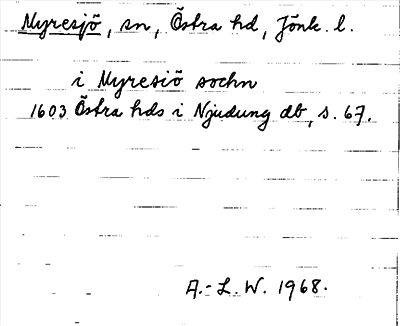 Myresjö, sn, Östra hd, Jönk. l.
i Myresiö sochn
1603 Östra hds i Njudung db, s. 67.
A.-L. W. 1968.